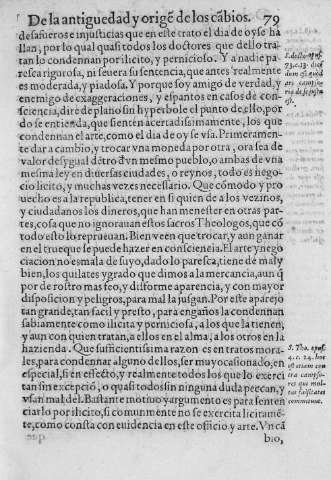 De la antiguedad y origẽ de los cãbios. 79
desafueros e injusticias que en este trato el dia de oy se ha
llan, por lo qual quasi todos los doctores que dello tra-
tan lo condennan por ilicito, y pernicioso. Y a nadie pa-
resca rigurosa, ni seuera su sentencia, que antes realmente
es moderada, y piadosa. Y porque soy amigo de verdad, y
enemigo de exaggeraciones, y espantos en casos de con-
sciencia, dire de plano sin hyperbole el punto dello, por
do se entienda, que sienten acertadissimamente, los que
condennan el arte, como el dia de oy se vsa. Primeramen-
te dar a cambio, y trocar vna moneda por otra, ora sea de
valor desygual dẽtro đ vn mesmo pueblo, o ambas de vna
mesma ley en diuersas ciudades, o reynos, todo es nego-
cio licito, y muchas vezes necessario. Que cõmodo y pro
uecho es a la republica, tener en si quien de a los vezinos,
y ciudadanos los dineros, que han menester en otras par-
tes, cosa que no ignorauan estos sacros Theologos, que cõ
todo esto lo reprueuan. Bien veen que trocar, y aun ganar
en el trueque se puede hazer en consciencia. El arte y nego
ciacion no es mala de suyo, dado lo paresca, tiene de mal y
bien, los quilates y grado que dimos a la mercancia, aun q̃
por de rostro mas feo, y disforme aparencia, y con mayor
disposicion y peligros, para mal la jusgan. Por este aparejo
tan grande, tan facil y presto, para engaños la condennan
sabiamente como ilicita y perniciosa, a los que la tienen,
y aun con quien tratan, a ellos en el alma, a los otros en la
hazienda. Que sufficientissima razon es en tratos mora-
les, para condennar alguno dellos, ser muy ocasionado, en
especial, si en effecto, y realmente todos los que lo exerci
tan sin excepciõ, o quasi todos sin ninguna duda peccan, y
vsan mal del. Bastante motiuo y argumento es para senten
ciarlo por ilicito, si comunmente no se exercita licitamẽ-
te, como consta con euidencia en este officio y arte. Vn cã
bio,
S. Tho. opus.
4. c. 24. hor